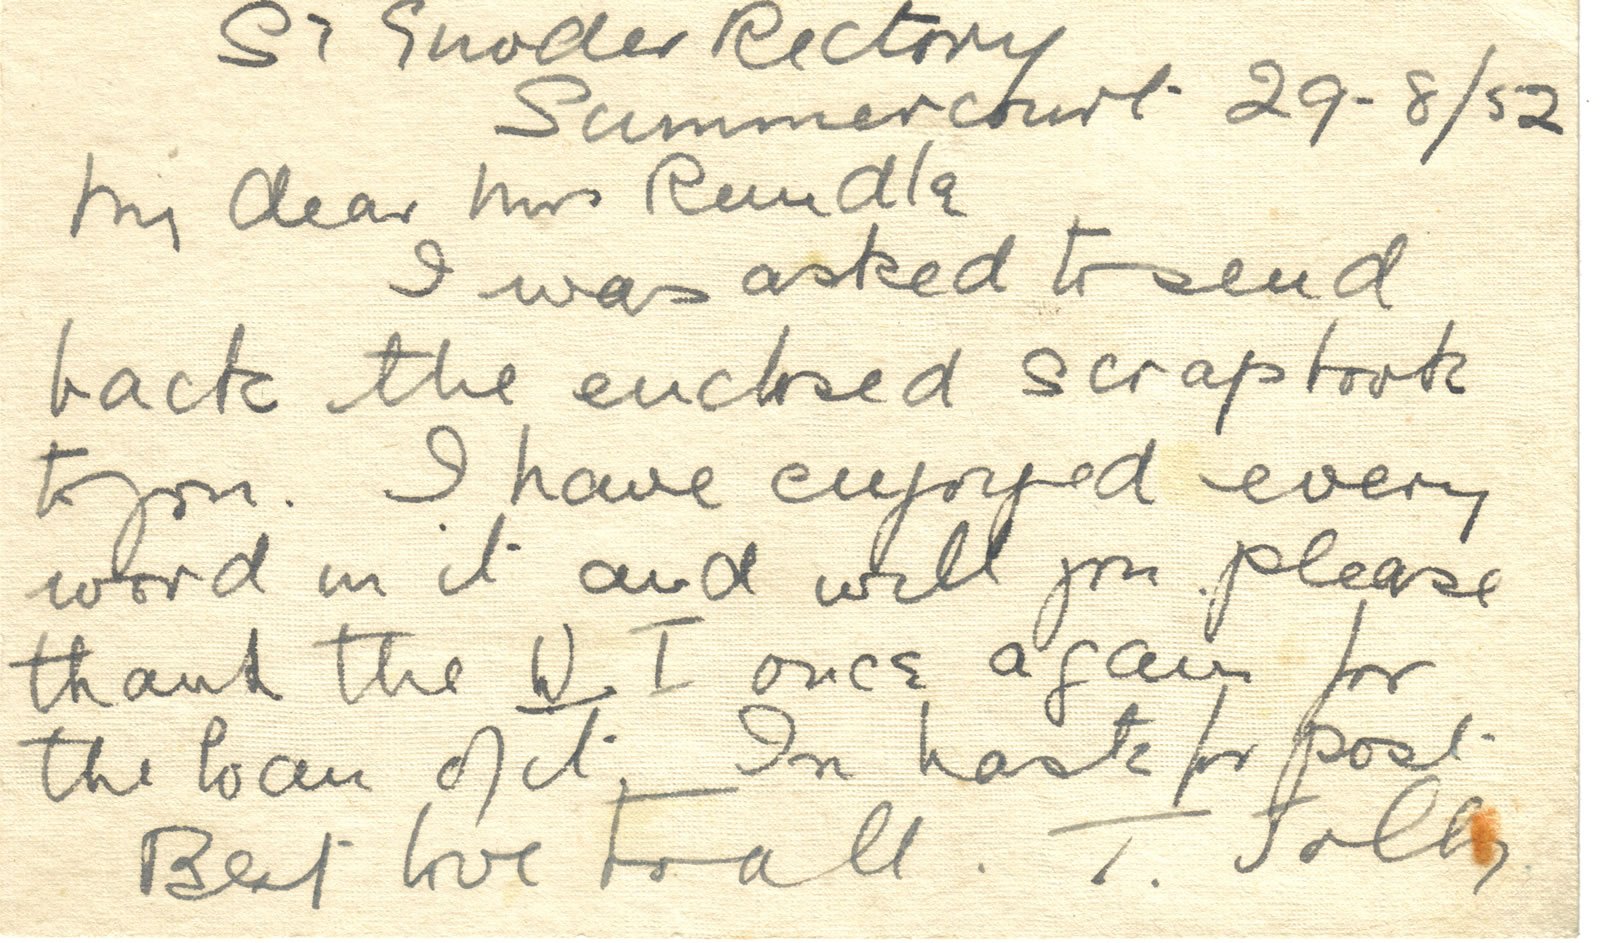 St Enoder Rectory
Summercourt 29-8/52
My dear Mrs Rundle
I was asked to send
back the enclosed scrapbook
to you. I have enjoyed every
word in it and will you please
thank the W.I once again for
the loan of it. In haste for post
Best love to all. T. Jolly